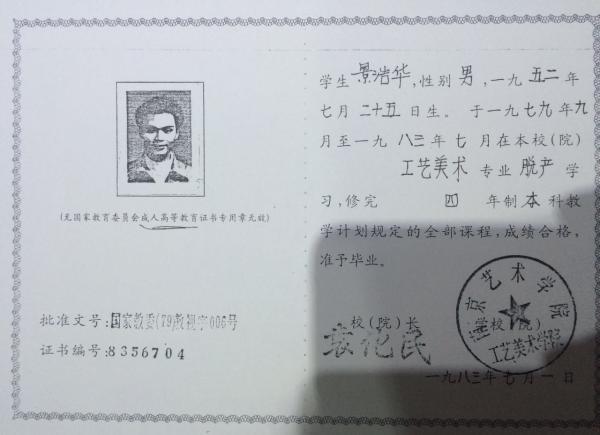 学生 景浩华,性别 男,一九五二年
七月二十五日生。于一九七九年九
月至一九八三年七月在本校(院)
工艺美术 专业 脱产 学
习,修完 四 年制本科教
学计划规定的全部课程,成绩合格,
准予毕业。
(无国家教育委员会成人高等教育证书专用章无效)
批准文号:国家教委(79)教视字006号
证书编号:8356704
校(院)长
学校(院)
南京艺术学院
工艺美术学院
一九八三年七月一日